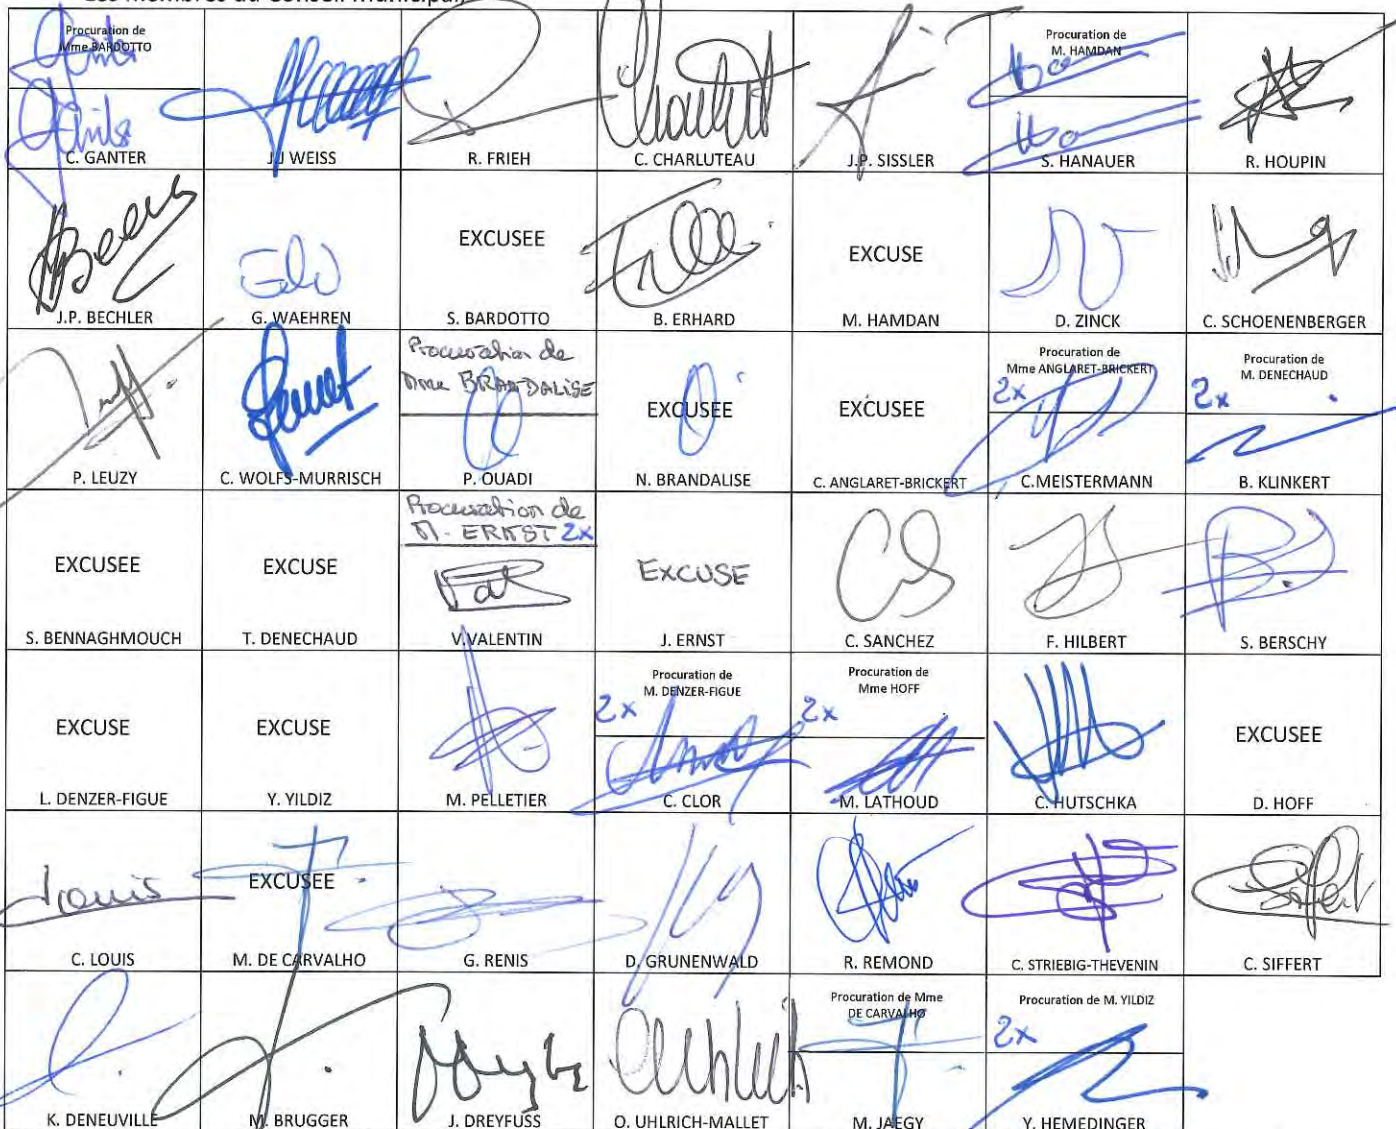 Les membres du Conseil Municipal,
Procuration de
Mme BARDOTTO
C. GANTER
J.J WEISS
R. FRIEH
C. CHARLUTEAU
J.P. SISSLER
Procuration de
M. HAMDAN
S. HANAUER
R. HOUPIN
J.P. BECHLER
G. WAEHREN
EXCUSEE
S. BARDOTTO
B. ERHARD
EXCUSE
M. HAMDAN
D. ZINCK
C. SCHOENENBERGER
P. LEUZY
C. WOLFS-MURRISCH
Procuration de
Mme BRANDALISE
P. OUADI
EXCUSEE
N. BRANDALISE
EXCUSEE
C. ANGLARET-BRICKERT
Procuration de
Mme ANGLARET-BRICKERT
2x
C.MEISTERMANN
Procuration de
M. DENECHAUD
2x
B. KLINKERT
EXCUSEE
S. BENNAGHMOUCH
EXCUSE
T. DENECHAUD
Procuration de
M. ERNST 2x
V.VALENTIN
EXCUSE
J. ERNST
C. SANCHEZ
F. HILBERT
S. BERSCHY
EXCUSE
L. DENZER-FIGUE
EXCUSE
Y. YILDIZ
M. PELLETIER
Procuration de
M. DENZER-FIGUE
2x
C. CLOR
Procuration de
Mme HOFF
2x
M. LATHOUD
C. HUTSCHKA
EXCUSEE
D. HOFF
Louis
C. LOUIS
EXCUSEE
M. DE CARVALHO
G. RENIS
D. GRUNENWALD
R. REMOND
C. STRIEBIG-THEVENIN
C. SIFFERT
K. DENEUVILLE
M. BRUGGER
J. DREYFUSS
O. UHLRICH-MALLET
Procuration de Mme
DE CARVALHO
M. JAEGY
Procuration de M. YILDIZ
2x
Y. HEMEDINGER